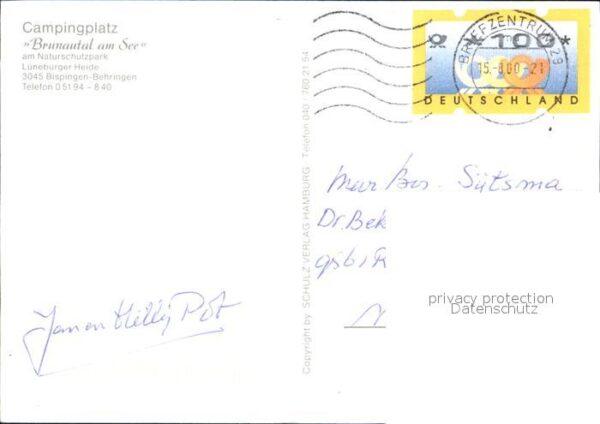 Campingplatz
"Brunautal am See"
am Naturschutzpark
Lüneburger Heide
3045 Bispingen-Behringen
Telefon 0 51 94 - 8 40
Copyright by SCHULZ VERLAG HAMBURG · Telefon 040 / 760 21 54
*100*
DEUTSCHLAND
BRIEFZENTRUM 29
15.-8.00-21
Sütsma
Dr. Bek
Jan en Willy Pot
privacy protection
Datenschutz